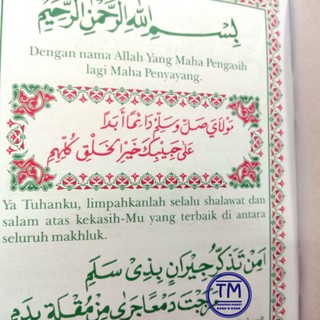 بِسْمِ اللهِ الرَّحْمٰنِ الرَّحِيْمِ
Dengan nama Allah Yang Maha Pengasih
lagi Maha Penyayang.
مَوْلَايَ صَلِّ وَسَلِّمْ دَائِمًا أَبَدًا
عَلَى حَبِيْبِكَ خَيْرِ الْخَلْقِ كُلِّهِمِ
Ya Tuhanku, limpahkanlah selalu shalawat dan
salam atas kekasih-Mu yang terbaik di antara
seluruh makhluk.
اَمِنْ تَذَكُّرِ جِيْرَانٍ بِذِيْ سَلَمِ
مَزَجْتَ دَمْعًا جَرٰى مِنْ مُقْلَةٍ بِدَمِ
TM